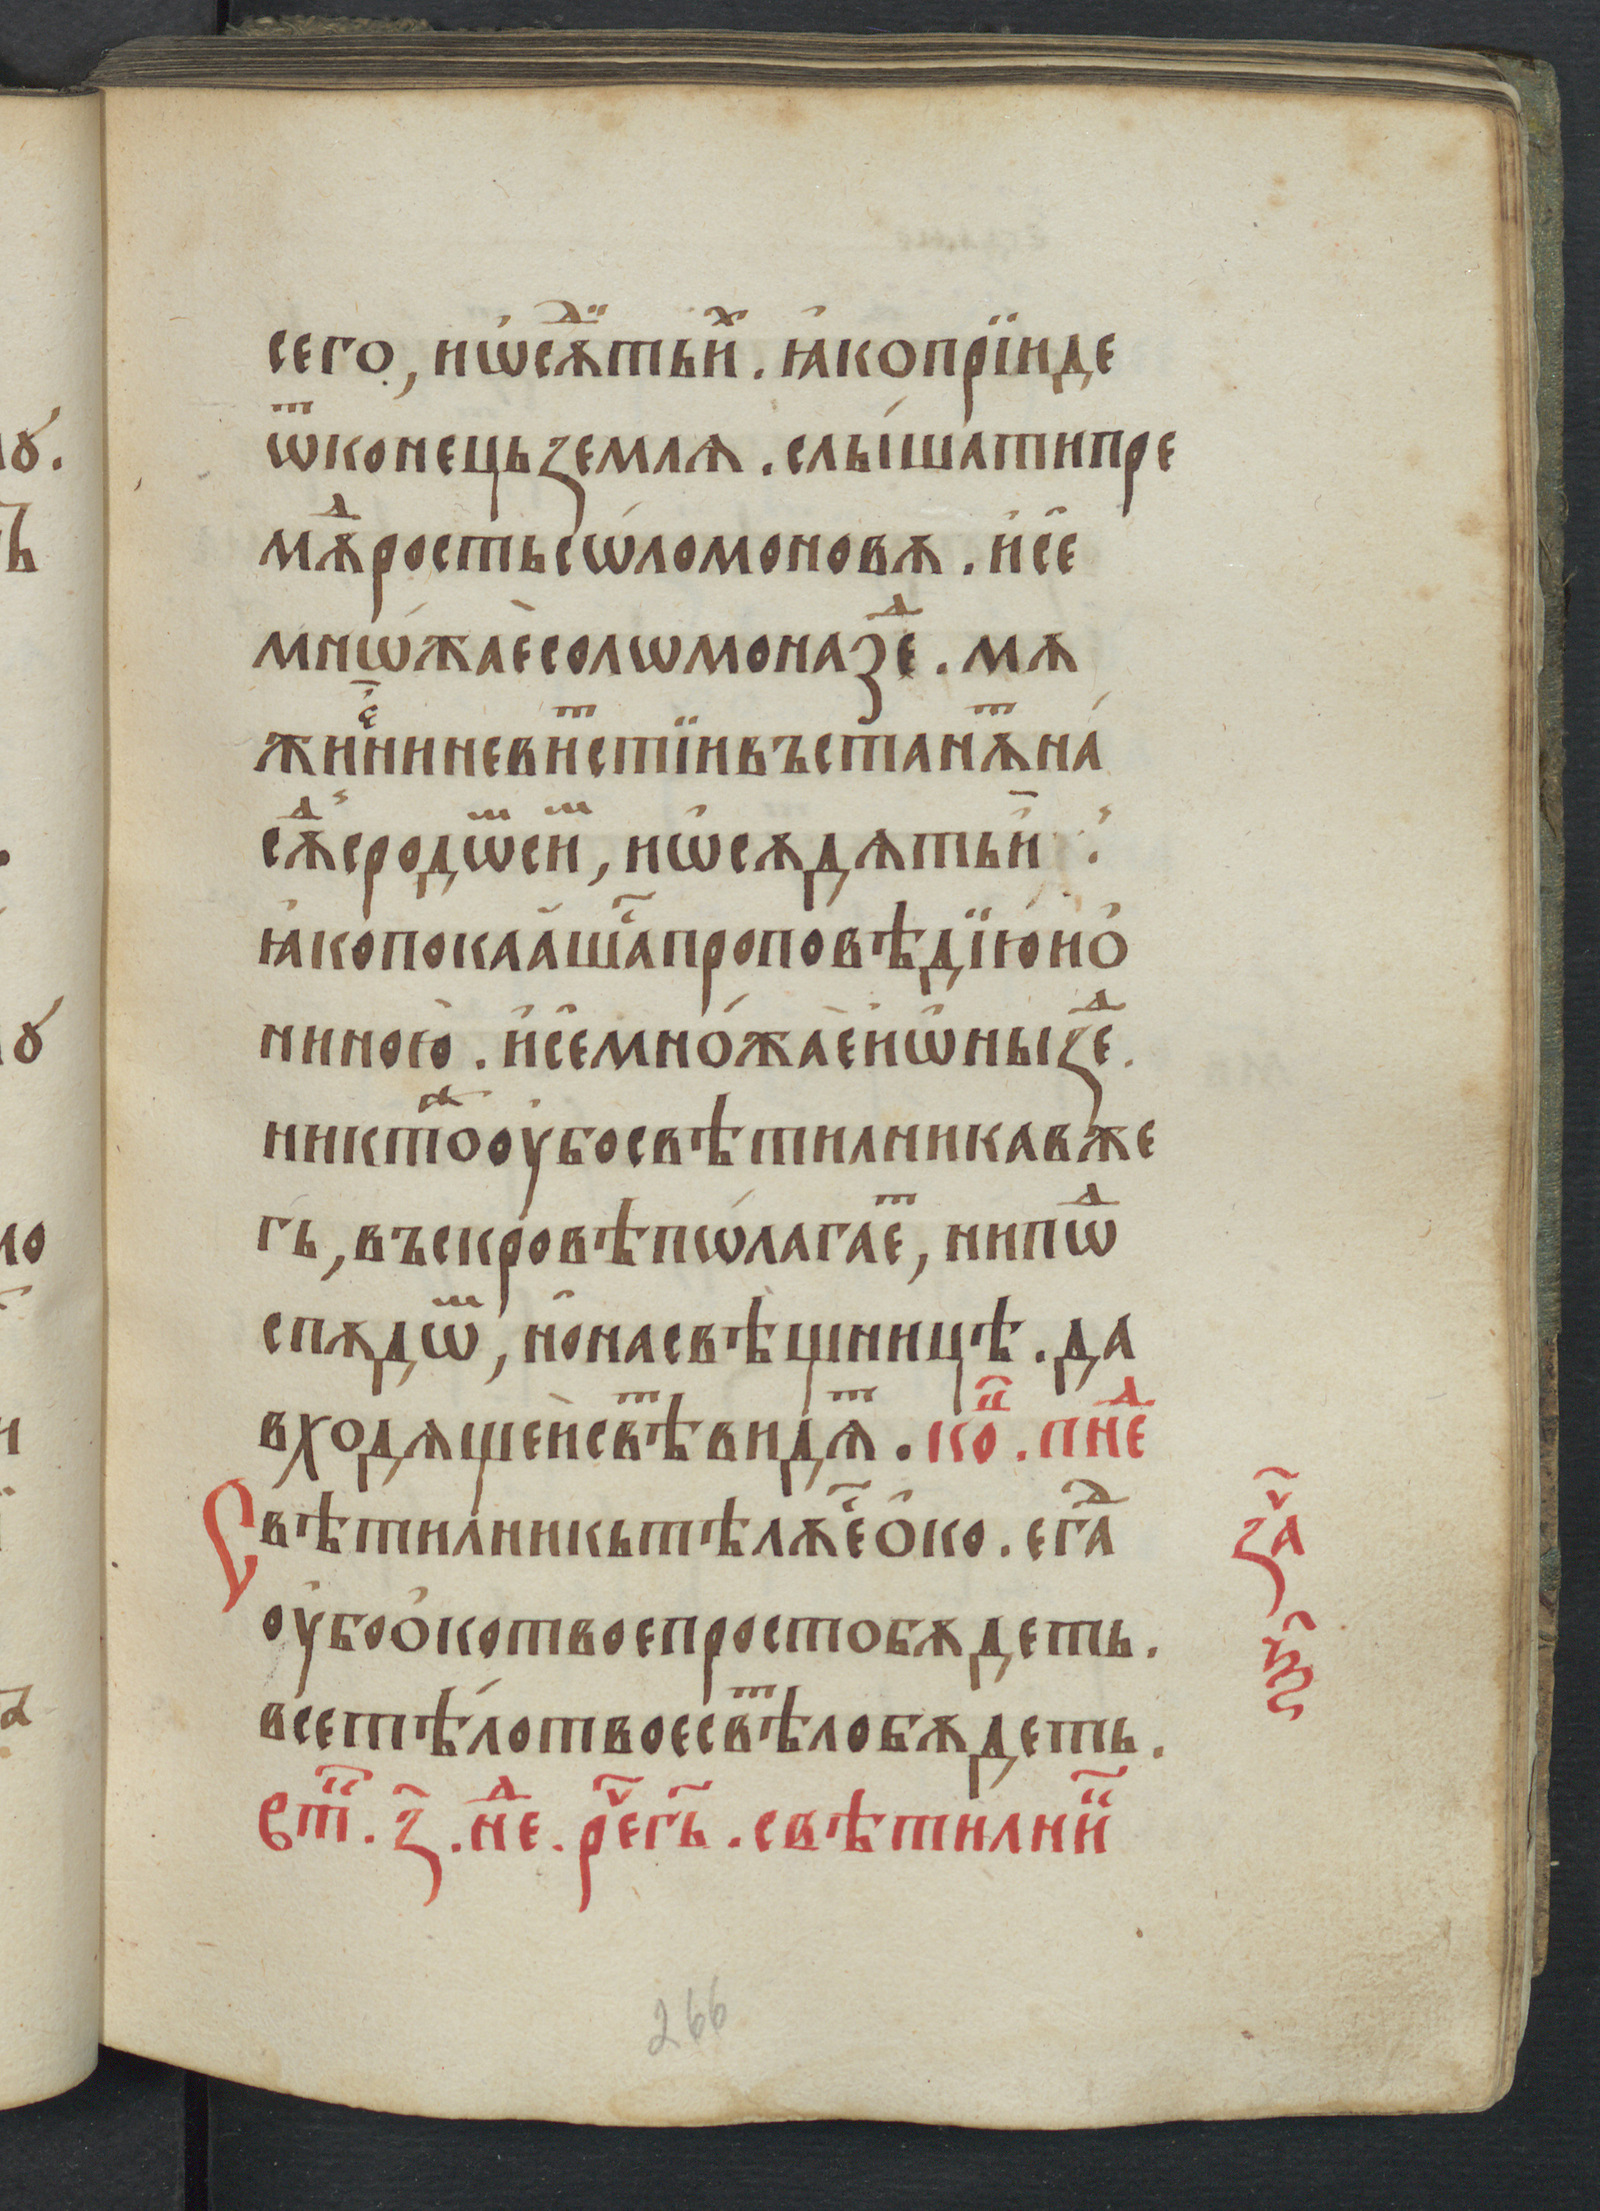 сего, и҆ѡсѫⷣ҇тьиⷯ. ꙗ҆копрїиде
ѿконецьземлѧ. слы́шатипре
мѫⷣростьсѡ́ломоновѫ. и҆се҆
мнѡ́жае҆солѡмоназⷣе. мѫ
жиⷤнининевиⷮстїивъстанѫⷮна́
сѫⷣсродѡⷨсиⷨ, иѡ҆сѫдѧтьи҆ :
ꙗ҆копокаа҆шⷭ҇апроповѣдїю҆но҆
ниною҆. и҆се҆мно́жае҆и҆ѡ҆ныzⷣе.
никтоⷤоу҆босвѣтилникавже
гъ, въскровѣпѡ́лагаеⷮ, нипѡⷣ
спѫдѡⷨ, но҆насвѣщницѣ. да
входѧщеи҆свѣⷮвидѧⷮ. коⷰ҇. пнеⷣ
Свѣтилникьтѣлѫⷭ҇е҆о҆ко. егаⷣ
оу҆боо҆котвоепростобѫдеть.
всетѣ́лотвоесвѣⷮлобѫдеть.
Єтⷢ҇. з҃. неⷣ. рⷱ҇егь. свѣтилниⷦ҇
заⷱ҇
н҃з
266